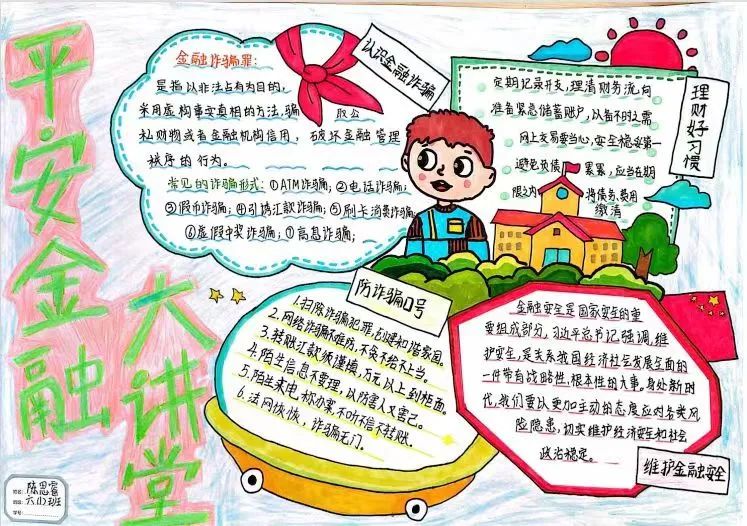 平安金融
大讲堂
认识金融诈骗
金融诈骗罪:
是指以非法占有为目的,
采用虚构事实真相的方法,骗取公
私财物或者金融机构信用,破坏金融管理
秩序的行为。
常见的诈骗形式:①ATM诈骗;②电话诈骗;
③假币诈骗;④引诱汇款诈骗;⑤刷卡消费诈骗
⑥虚假中奖诈骗;⑦高息诈骗;
理财好习惯
定期记录开支,理清财务流向
准备紧急储蓄账户,以备不时之需
网上交易要当心,安全稳妥第一
避免负债累累,应当在期
限之内将债务、费用
缴清
防诈骗口号
1.扫除诈骗犯罪,创建和谐家园。
2.网络诈骗不难防,不贪不给不上当。
3.转账汇款须谨慎,万元以上到柜面。
4.陌生信息不要理,以防害人又害己。
5.陌生来电称办案,不听不信不转账。
6.法网恢恢,诈骗无门。
金融安全是国家安全的重
要组成部分,习近平总书记强调,维
护安全,是关系我国经济社会发展全面的
一件带有战略性,根本性的大事,身处新时
代,我们要以更加主动的态度应对各类风
险隐患,切实维护经济安全和社会
政治稳定。
维护金融安全
姓名:陈思睿
班级:六(1)班
学号: